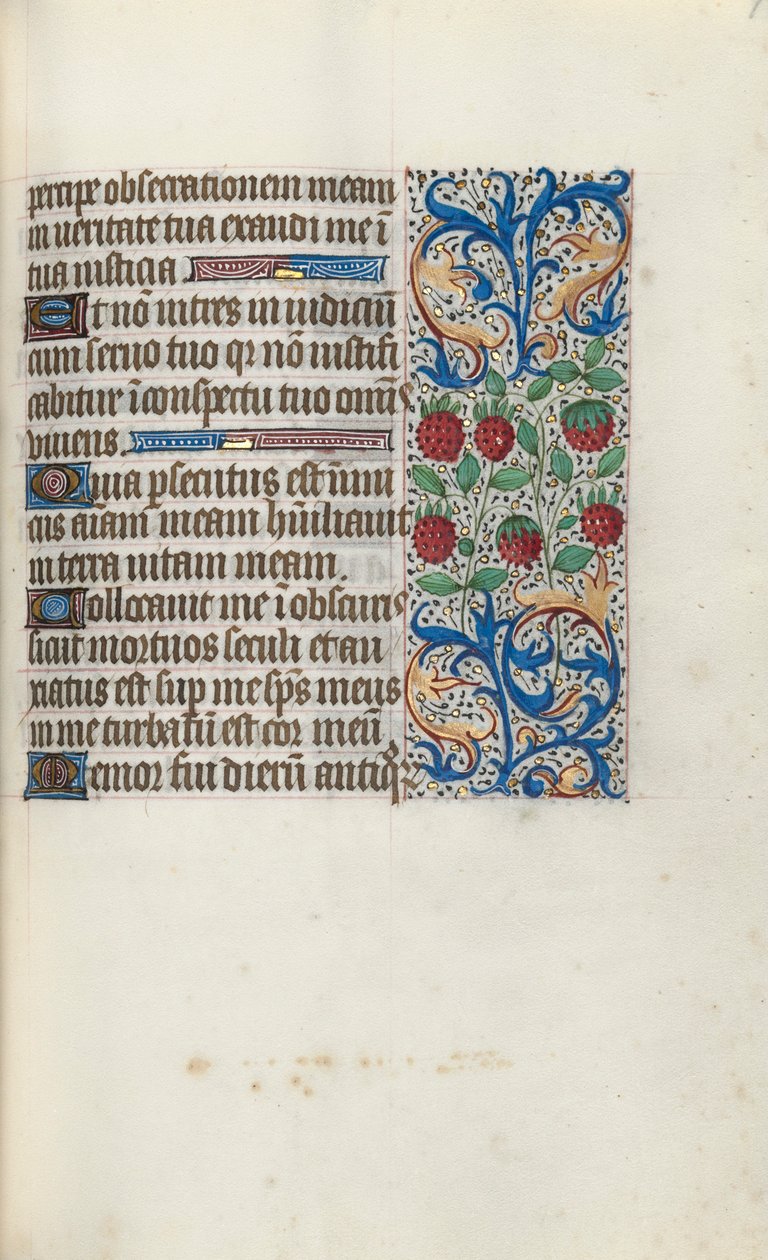 percipe obsecrationem meam
in ueritate tua exaudi me ī
tua iusticia
Et nō intres in iudiciū
cum seruo tuo qꝛ nō iustifi
cabitur ī conspectu tuo omīs
viuens.
Quia ꝑsecutus est inimi
cus aīam meam hūiliauit
in terra uitam meam.
Collocauit me ī obscuris
sicut mortuos seculi et an
xiatus est suꝑ me sp̄s meus
in me turbatū est cor meū
Memor fui dierū antiqoꝝ